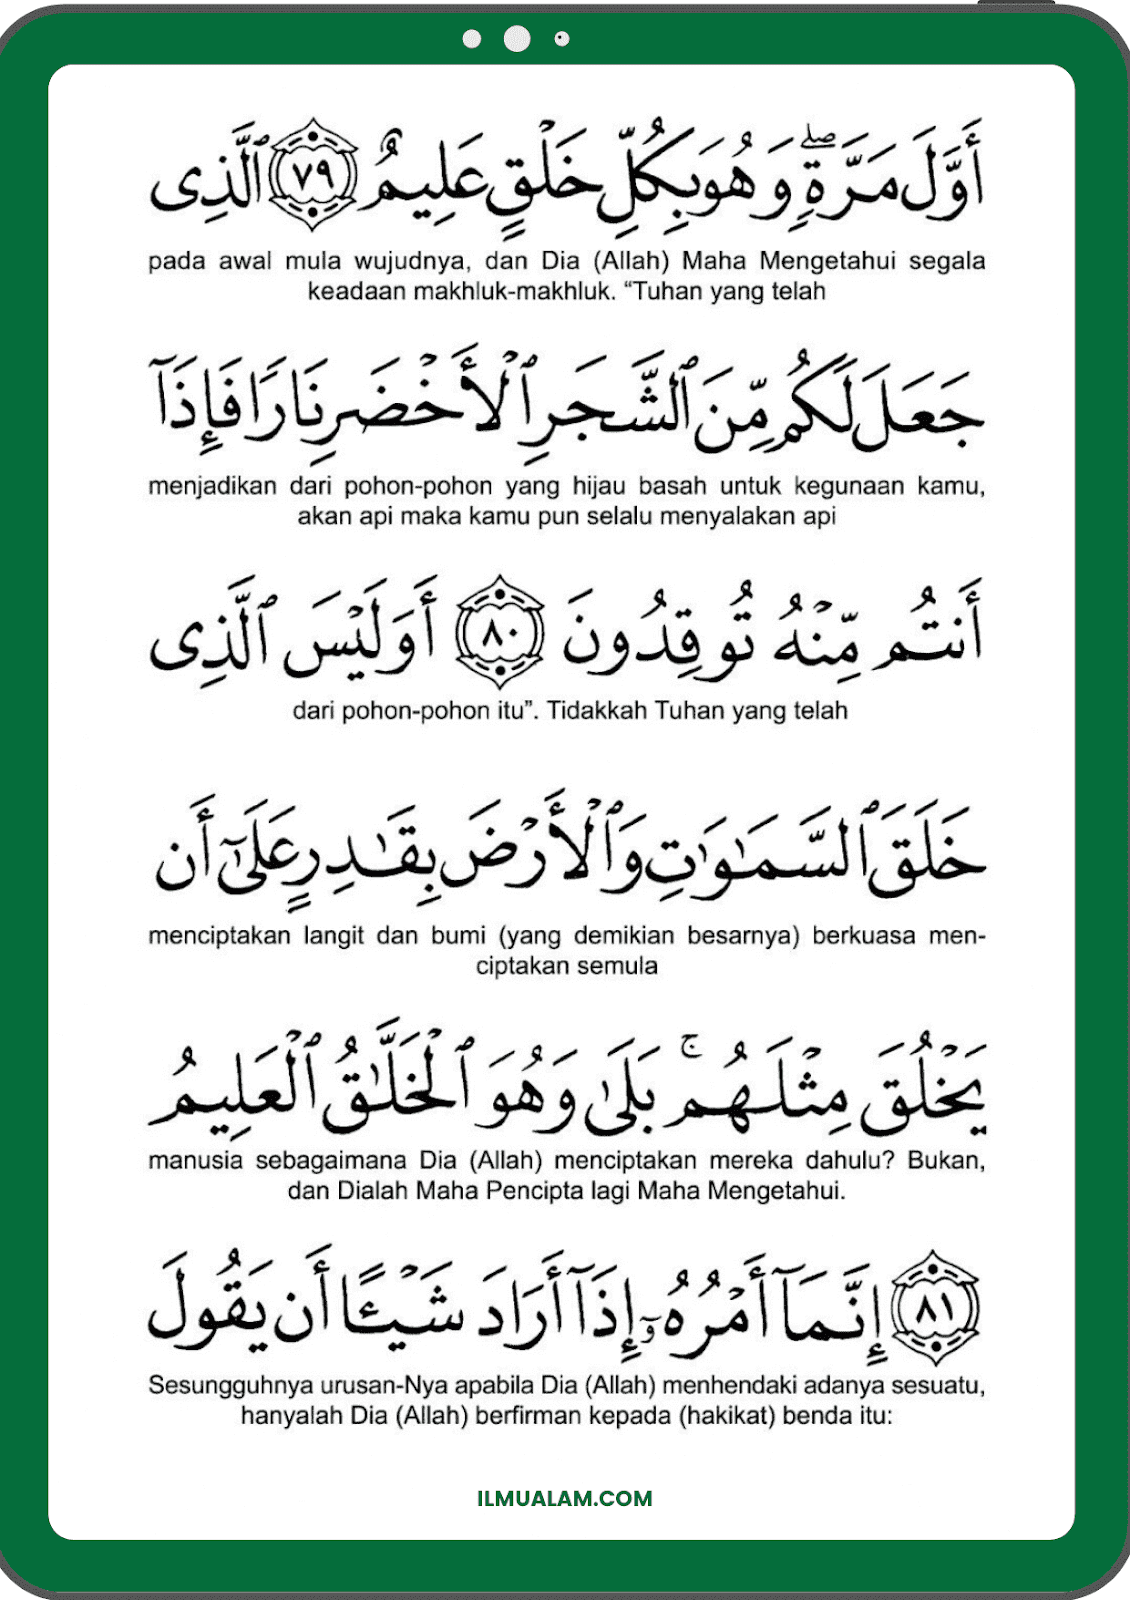 أَوَّلَ مَرَّةٍۖ وَهُوَ بِكُلِّ خَلْقٍ عَلِيمٌ ٧٩ ٱلَّذِى
pada awal mula wujudnya, dan Dia (Allah) Maha Mengetahui segala
keadaan makhluk-makhluk. “Tuhan yang telah
جَعَلَ لَكُم مِّنَ ٱلشَّجَرِ ٱلْأَخْضَرِ نَارًا فَإِذَآ
menjadikan dari pohon-pohon yang hijau basah untuk kegunaan kamu,
akan api maka kamu pun selalu menyalakan api
أَنتُم مِّنْهُ تُوقِدُونَ ٨٠ أَوَلَيْسَ ٱلَّذِى
dari pohon-pohon itu”. Tidakkah Tuhan yang telah
خَلَقَ ٱلسَّمَٰوَٰتِ وَٱلْأَرْضَ بِقَٰدِرٍ عَلَىٰٓ أَن
menciptakan langit dan bumi (yang demikian besarnya) berkuasa men-
ciptakan semula
يَخْلُقَ مِثْلَهُمۚ بَلَىٰ وَهُوَ ٱلْخَلَّٰقُ ٱلْعَلِيمُ
manusia sebagaimana Dia (Allah) menciptakan mereka dahulu? Bukan,
dan Dialah Maha Pencipta lagi Maha Mengetahui.
٨١ إِنَّمَآ أَمْرُهُۥٓ إِذَآ أَرَادَ شَيْـًٔا أَن يَقُولَ
Sesungguhnya urusan-Nya apabila Dia (Allah) menhendaki adanya sesuatu,
hanyalah Dia (Allah) berfirman kepada (hakikat) benda itu:
ILMUALAM.COM